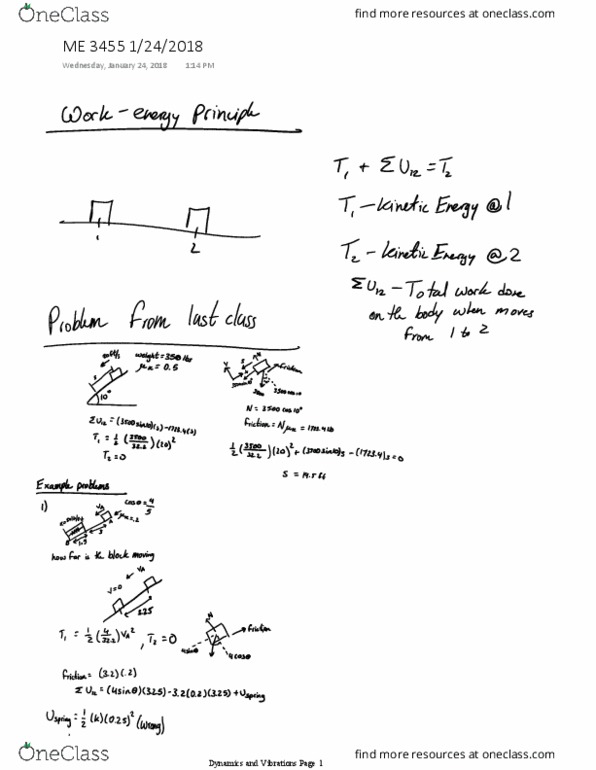 OneClass
find more resources at oneclass.com
ME 3455 1/24/2018
Wednesday, January 24, 2018 1:14 PM
Work-energy Principle
T₁ + ΣU₁₂ = T₂
T₁ - kinetic Energy @ 1
1
2
T₂ - kinetic Energy @ 2
ΣU₁₂ - Total work done
on the body when moves
from 1 to 2
Problem from last class
20ft/s
weight = 3500 lbs
μₖ = 0.5
S
10°
friction
N = 3500 cos 10°
friction = Nμₖ = 1723.4 lb
ΣU₁₂ = (3500 sin10)(s) - 1723.4(s)
T₁ = ½ (3500/32.2)(20)²
T₂ = 0
½ (3500/32.2)(20)² + (3500 sin10)s - (1723.4)s = 0
S = 19.5 ft
Example problems
1)
cosθ = 4/5
VA
μₖ = .2
3
B
A
how far is the block moving
VA
V=0
3.25
T₁ = ½ (4/32.2) VA² , T₂ = 0
N
friction
4sinθ
4cosθ
friction = (3.2)(.2)
ΣU₁₂ = (4sinθ)(3.25) - 3.2(0.2)(3.25) + Uspring
Uspring = ½ (k)(0.25)² (wrong)
OneClass
Dynamics and Vibrations Page 1
find more resources at oneclass.com